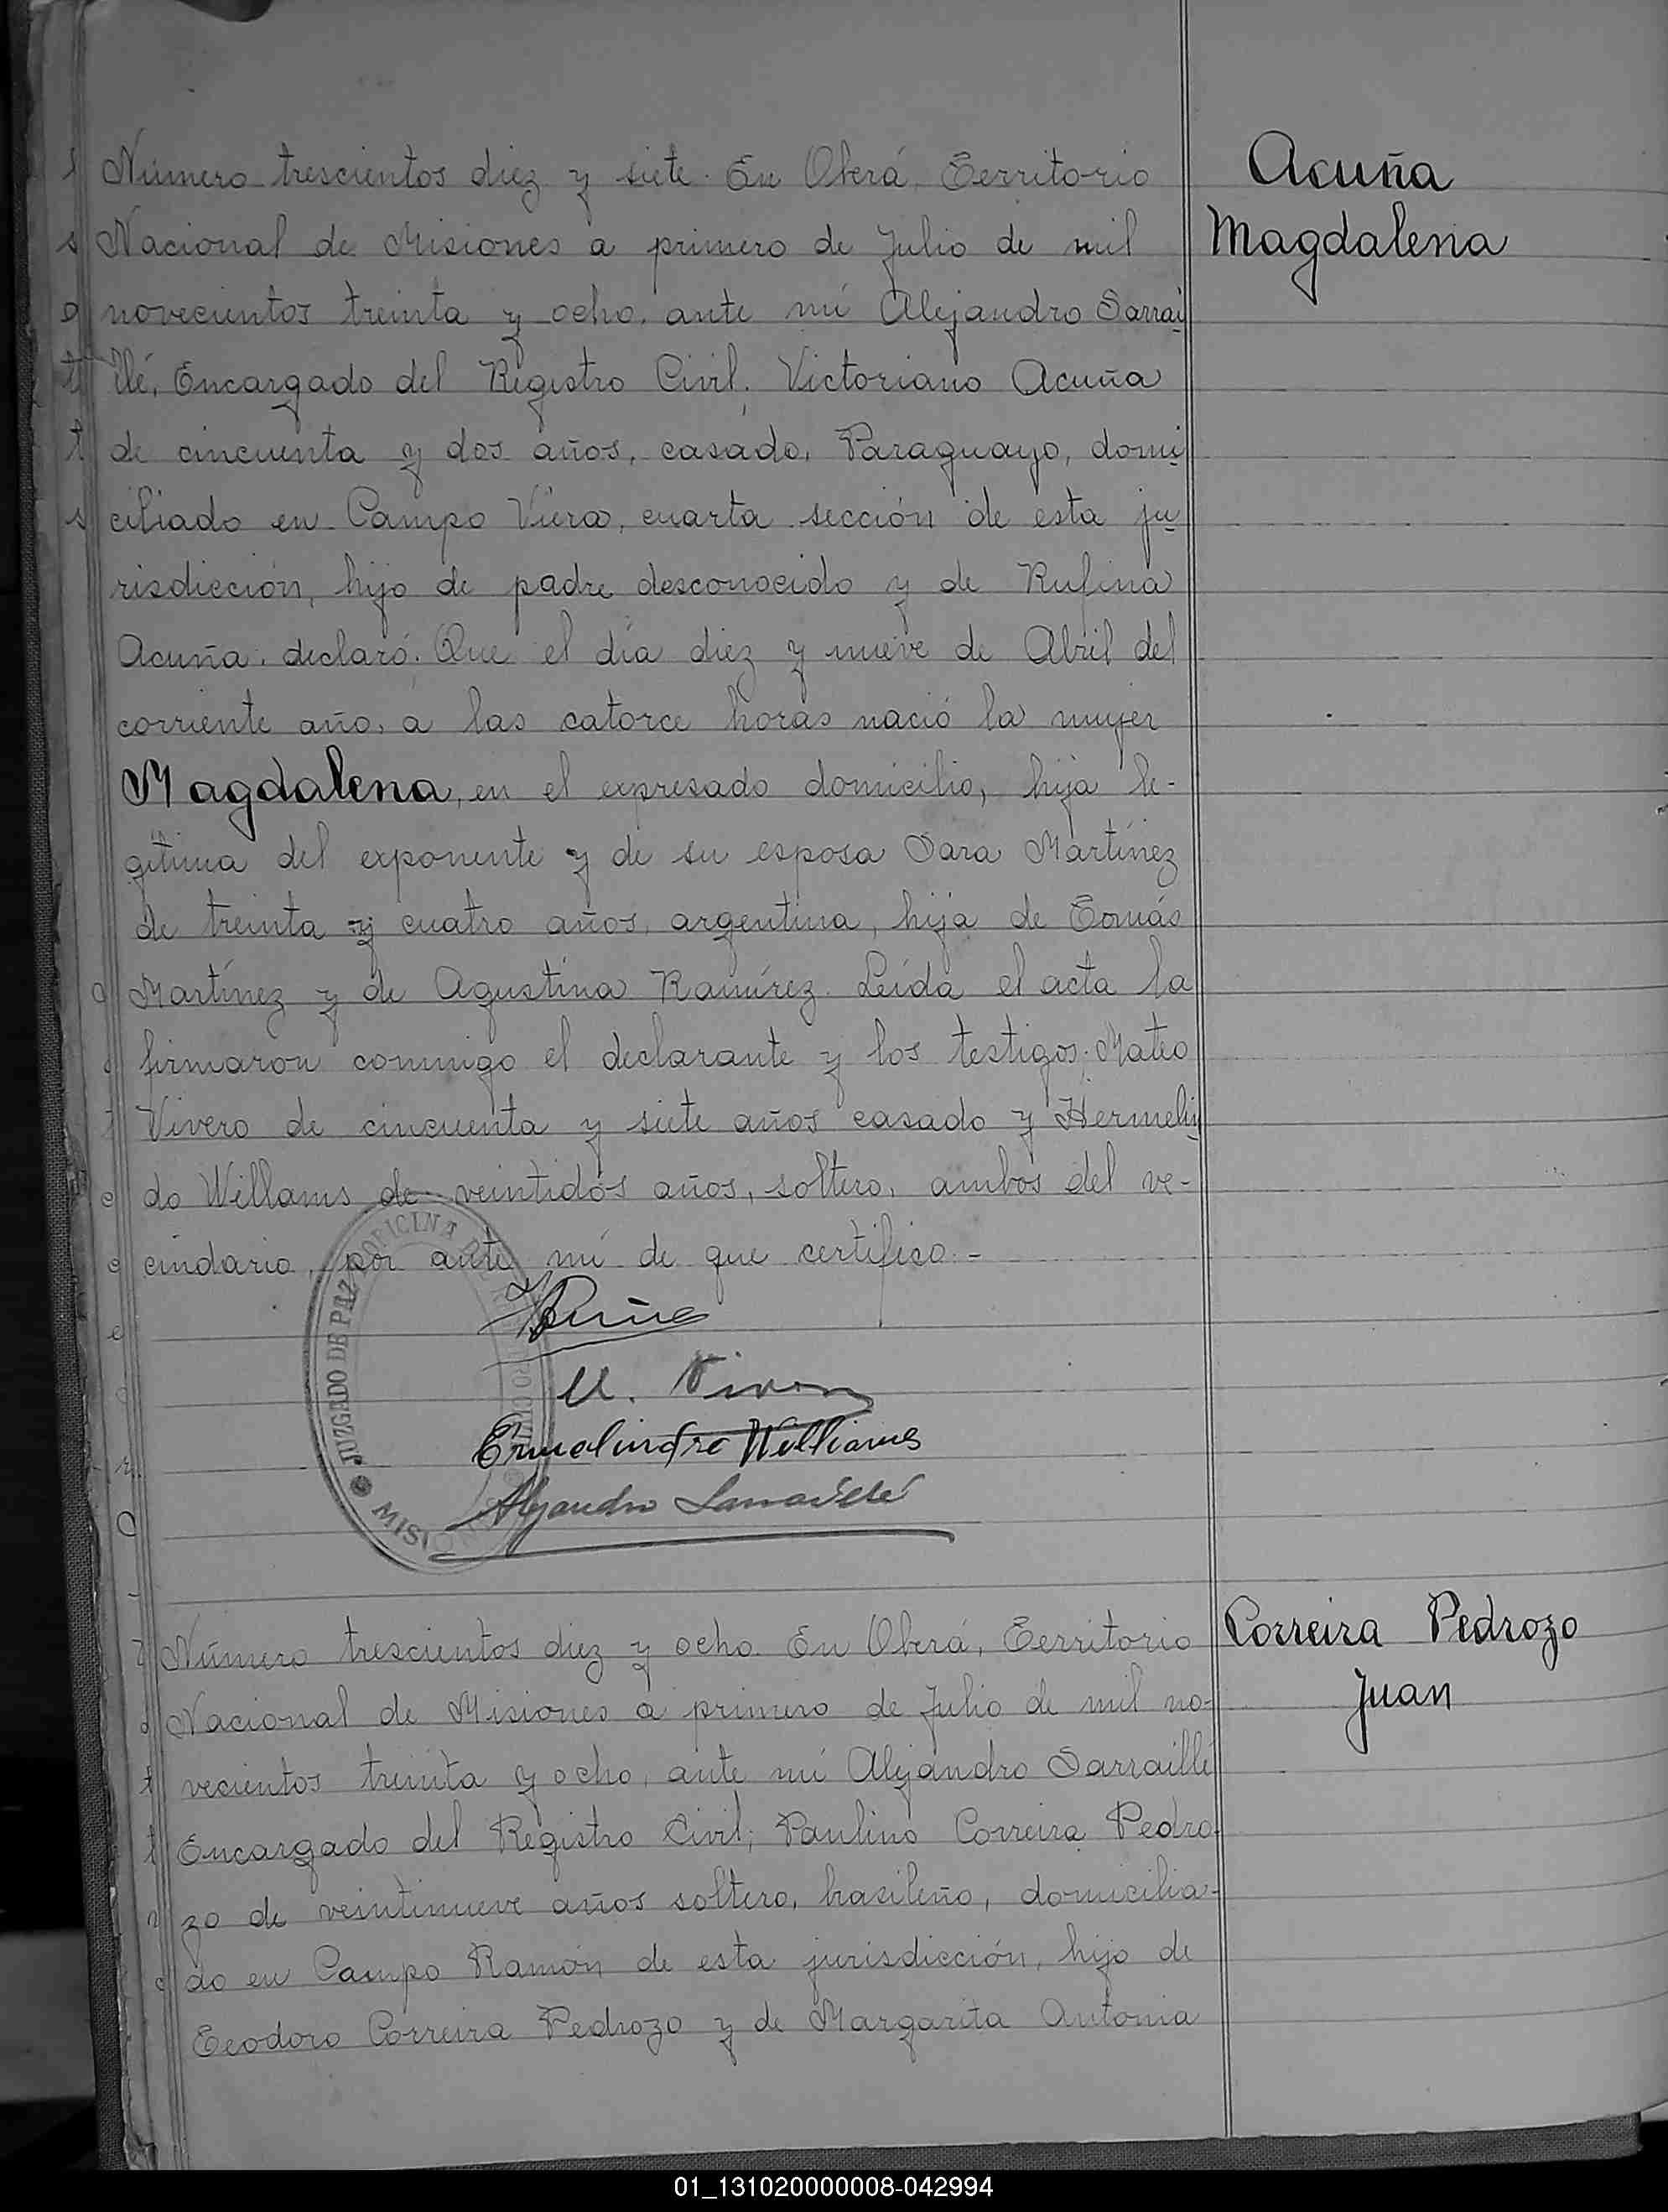 Número trescientos diez y siete. En Oberá, Territorio
Nacional de Misiones a primero de Julio de mil
novecientos treinta y ocho, ante mí Alejandro Sarrai
llé, Encargado del Registro Civil; Victoriano Acuña
de cincuenta y dos años, casado, Paraguayo, domi
ciliado en Campo Viera, cuarta sección de esta ju
risdicción, hijo de padre desconocido y de Rufina
Acuña, declaró: Que el día diez y nueve de Abril del
corriente año, a las catorce horas nació la mujer
Magdalena, en el expresado domicilio, hija le-
gítima del exponente y de su esposa Sara Martínez
de treinta y cuatro años, argentina, hija de Tomás
Martínez y de Agustina Ramírez. Leída el acta la
firmaron conmigo el declarante y los testigos: Mateo
Vivero de cincuenta y siete años casado y Hermelin
do Willams de veintidós años, soltero, ambos del ve-
cindario, por ante mí de que certifico.-
Acuña
Magdalena
M. Vivero
Ermelindro Williams
Alejandro Sarraillé
JUZGADO DE PAZ OFICINA DE
MISIONES
Número trescientos diez y ocho. En Oberá, Territorio
Nacional de Misiones a primero de Julio de mil no-
vecientos treinta y ocho, ante mí Alejandro Sarraillé
Encargado del Registro Civil; Paulino Correira Pedro-
zo de veintinueve años soltero, brasileño, domicilia-
do en Campo Ramón de esta jurisdicción, hijo de
Teodoro Correira Pedrozo y de Margarita Antonia
Correira Pedrozo
Juan
01_131020000008-042994